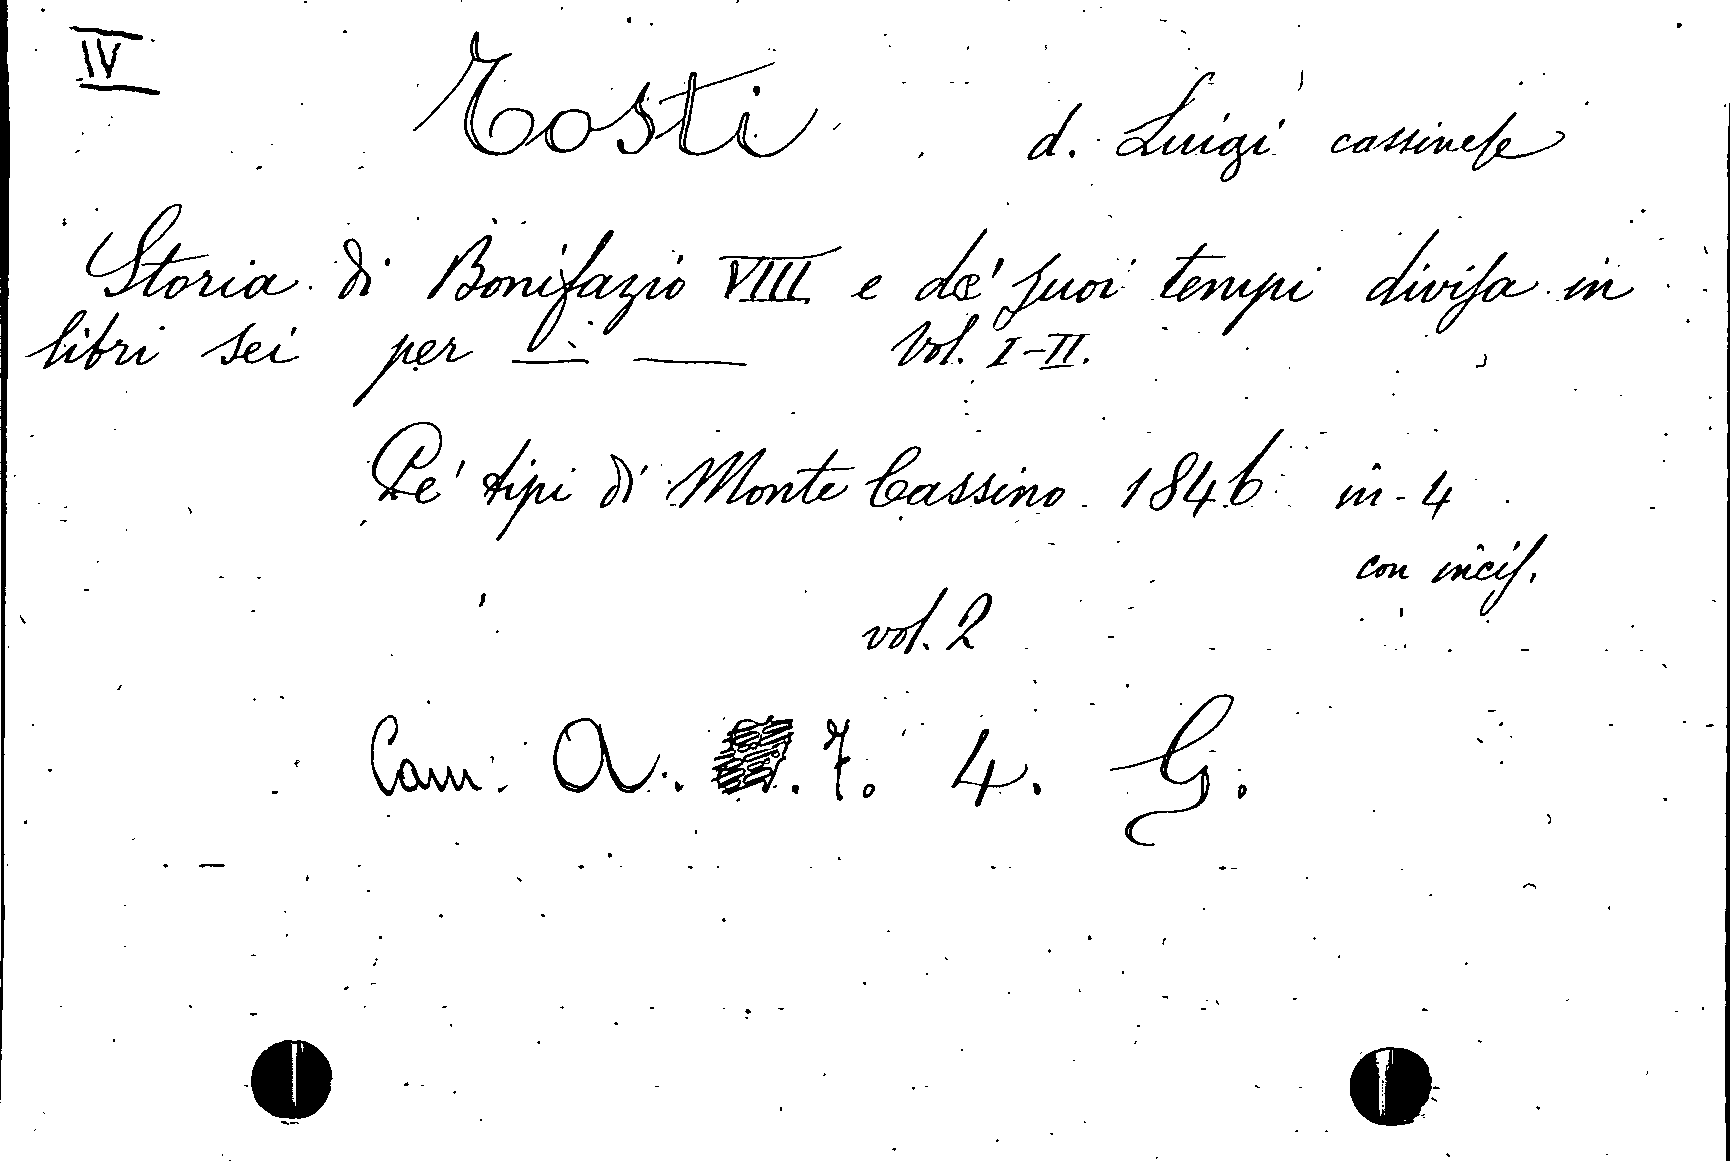 IV
Tosti d. Luigi cassinese
Storia di Bonifazio VIII e de' suoi tempi divisa in
libri sei per — — Vol. I-II.
Pe' tipi di Monte Cassino 1846 in-4
con incis.
vol. 2
Cam. A. . 7. 4. G.